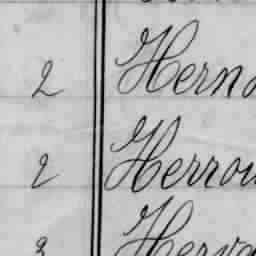 2 Hern
2 Herrou
3 Herva